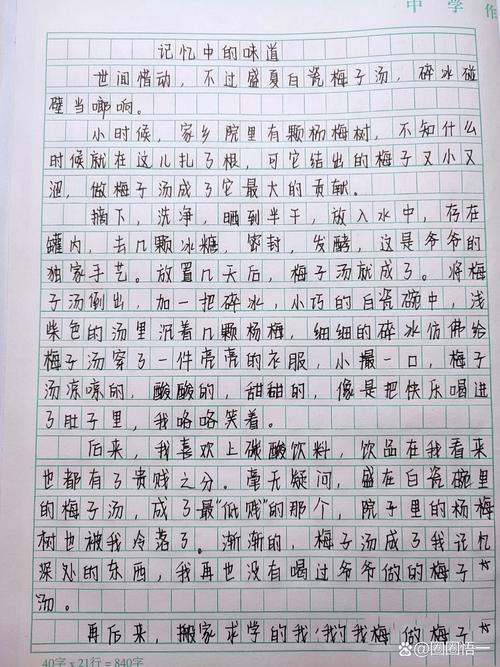 中 学 作
记忆中的味道
世间惜动，不过盛夏白瓷梅子汤，碎冰碰
壁当啷响。
小时候，家乡院里有颗杨梅树，不知什么
时候就在这儿扎了根，可它结出的梅子又小又
涩，做梅子汤成了它最大的贡献。
摘下，洗净，晒到半干，放入水中，存在
罐内，去几颗冰糖，密封，发酵，这是爷爷的
独家手艺。放置几天后，梅子汤就成了。将梅
子汤倒出，加一把碎冰，小巧的白瓷碗中，浅
柴色的汤里沉着几颗杨梅，细细的碎冰仿佛给
梅子汤穿了一件亮亮的衣服，小撮一口，梅子
汤凉凉的，酸酸的，甜甜的，像是把快乐喝进
了肚子里，我咯咯笑着。
后来，我喜欢上碳酸饮料，饮品在我看来
也都有了贵贱之分。毫无疑问，盛在白瓷碗里
的梅子汤，成了最“低贱”的那个，院子里的杨梅
树也被我冷落了。渐渐的，梅子汤成了我记忆
深处的东西，我再也没有喝过爷爷做的梅子
汤。
再后来，搬家求学的我
40字×21行=840字
@圈圈悟一